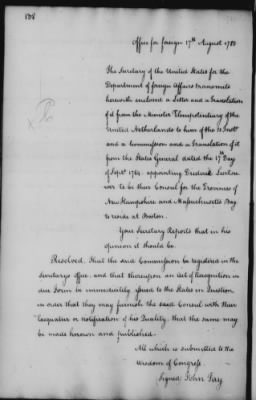 138
Office for foreign 17th August 1785
The Secretary of the United States for the
Department of foreign Affairs transmits
herewith enclosed a Letter and a Translation
of it from the Minister Plenipotentiary of the
United Netherlands to him of the 15 Inst.
and a Commission and a Translation of it
from the States General dated the 17th Day
of Sept. 1784 appointing
to be their Consul for the Province of
New Hampshire and Massachusetts Bay
to reside at Boston.
Your Secretary Reports that in his
opinion it should be.
Resolved, That the said Commission be registered in the
Secretary's Office, and that thereupon an Act of Recognition in
due Form be immediately issued to the States in Question
in order that they may furnish the said Consul with their
Exequatur or Notification of his Quality, that the same may
be made known and published.
All which is submitted to the
Wisdom of Congress.
Signed John Jay